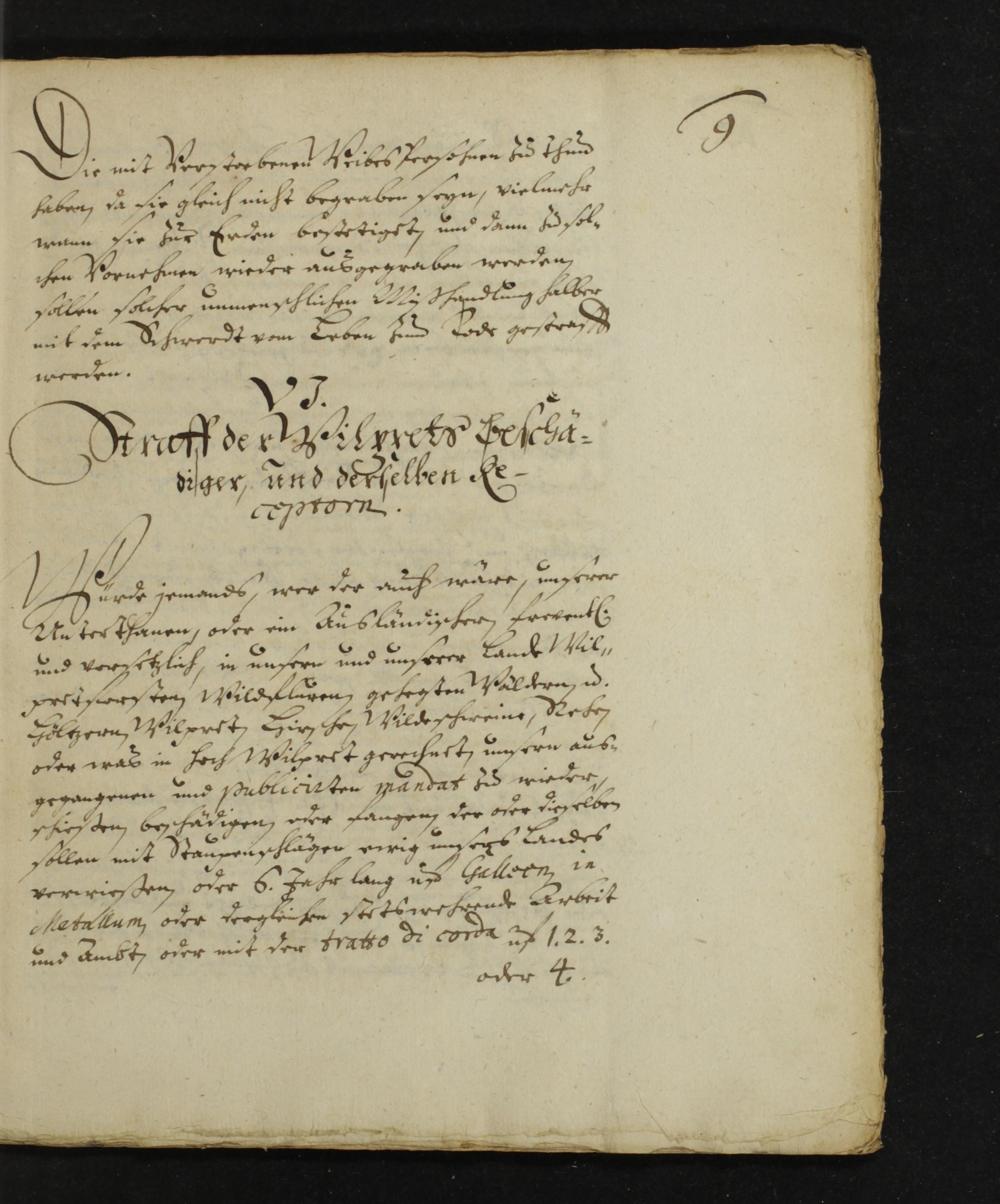 9
Die mit Verstorbenen Weibes Persohnen zu thun
haben, da sie gleich nicht begraben seyn, vielmehr
wann sie zur Erden bestetiget, und dann zu sol-
chen Vornehmen wieder ausgegraben werden,
sollen solcher unmenschlichen Mißhandlung halber
mit dem Schwerdt vom Leben zum Tode gestrafft
werden.
VI.
Straff der Wilprets Beschä-
diger, und derselben Re-
ceptorn.
Würde jemands, wer der auch wäre, unserer
Unterthanen, oder ein Ausländischer, freventl:
und versetzlich, in unsern und unserer Lande Wil-
pretsforsten, Wildfluren, gehegten Wäldern, u.
Höltzern, Wilpret, Hirsche, Wildeschweine, Rehe,
oder was in hoch Wilpret gerechnet, unsern aus-
gegangenen und publicirten mandat zu wieder,
schiessen, beschädigen, oder fangen, der oder dieselben
sollen mit Staupenschlägen ewig unsers Landes
verwiesen, oder 6. Jahr lang uf Galleen, in
Metallum, oder dergleichen stetswehrende Arbeit
und Ambt, oder mit der tratto di corda uf 1. 2. 3.
oder 4.